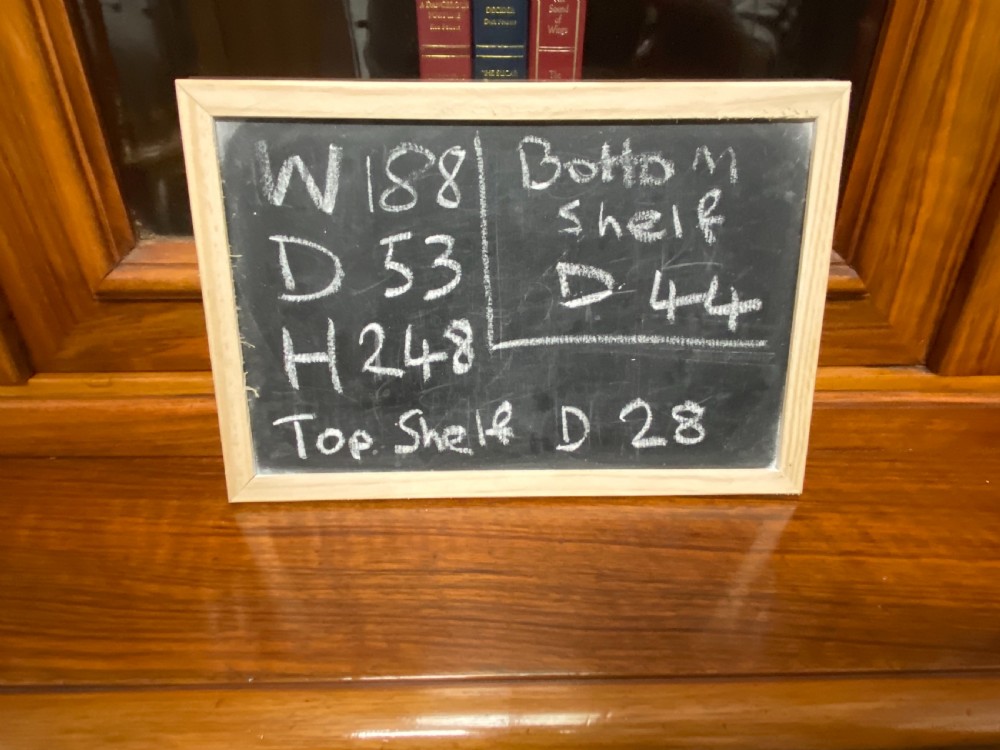 The Sound of Wings
W 188
D 53
H 248
Bottom
Shelf
D 44
Top Shelf D 28